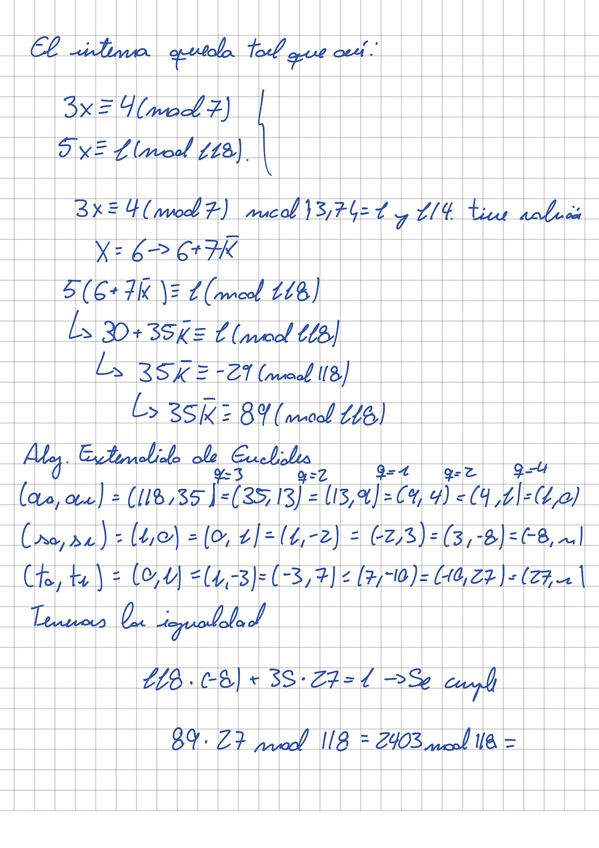 El sistema queda tal que así:
3x ≡ 4 (mod 7)
5x ≡ 1 (mod 118).
3x ≡ 4 (mod 7) mcd{3,7} = 1 y 1/4. tiene solución
X = 6 -> 6 + 7k̄
5(6 + 7k̄) ≡ 1 (mod 118)
↳ 30 + 35k̄ ≡ 1 (mod 118)
↳ 35k̄ ≡ -29 (mod 118)
↳ 35k̄ ≡ 89 (mod 118)
Alg. Extendido de Euclides
q=3 q=2 q=1 q=2 q=4
(a0, a1) = (118, 35) = (35, 13) = (13, 9) = (9, 4) = (4, 1) = (1, 0)
(s0, s1) = (1, 0) = (0, 1) = (1, -2) = (-2, 3) = (3, -8) = (-8, n)
(t0, t1) = (0, 1) = (1, -3) = (-3, 7) = (7, -10) = (-10, 27) = (27, n)
Tenemos la igualdad
118 · (-8) + 35 · 27 = 1 -> Se cumple
89 · 27 mod 118 = 2403 mod 118 =